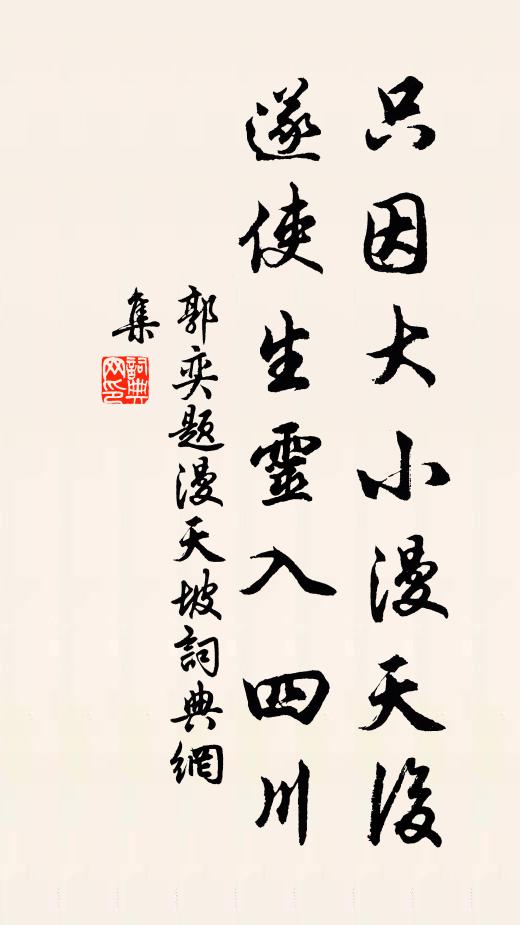 只因大小漫天後
遂使生靈入四川
郭奕題漫天坡詞典網
集
詞典
网印